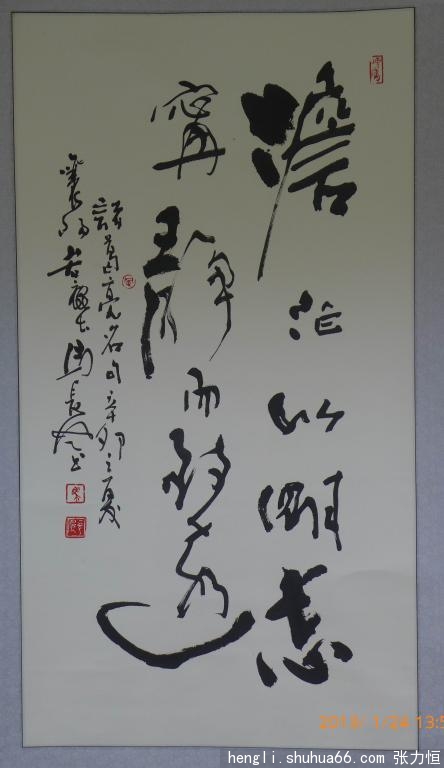 澹泊以明志
寧靜而致遠
諸葛亮名句辛卯之夏
襄陽
2018/1/24 13:5
hengli.shuhua66.com 张力恒